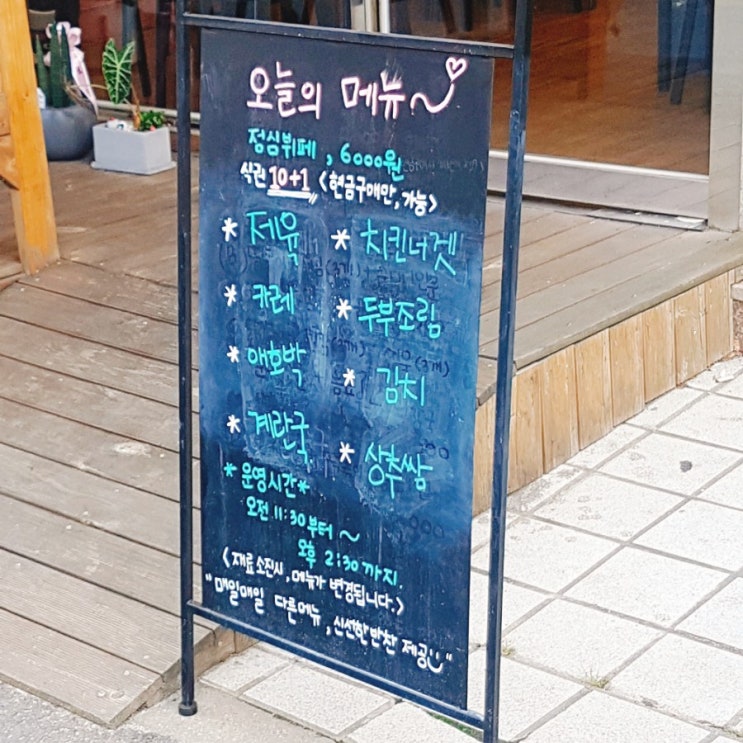 오늘의 메뉴~
정심뷔페 , 6000원
식권 10+1 <현금구매만, 가능>
* 제육 * 치킨너겟
* 카레 * 두부조림
* 애호박 * 김치
* 계란국 * 상추쌈
* 운영시간 *
오전 11:30 부터 ~
오후 2:30 까지.
<재료 소진시, 메뉴가 변경됩니다.>
"매일매일 다른메뉴, 신선한반찬 제공"